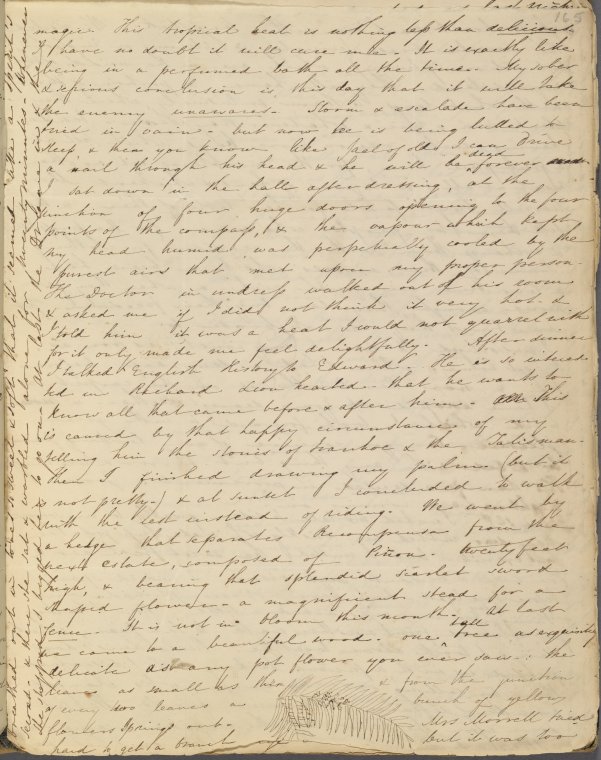 165
magic. This tropical heat is nothing less than delicious.
I have no doubt it will cure me. It is exactly like
being in a perfumed bath all the time. My sober
& serious conclusion is, this day that it will take
the enemy unawares. Storm & escalade have been
tried in vain - but now he is being lulled to
sleep, & then you know like Jael of old I can drive
a nail through his head & he will be dead forever
I sat down in the hall after dressing, at the
junction of four huge doors opening to the four
points of the compass, & the vapour which kept
my head humid was perpetually cooled by the
purest airs that met upon my proper person.
The Doctor in undress walked out of his room
& asked me if I did not think it very hot. &
I told him it was a heat I could not quarrel with
for it only made me feel delightfully. After dinner
I talked English History to Edward. He is so interes-
ted in Richard Lion hearted that he wants to
know all that came before & after him. This
is caused by that happy circumstance of my
telling him the stories of Ivanhoe & the Talisman.
Then I finished drawing my palm (but it
is not pretty.) & at sunset I concluded to walk
with the rest instead of riding. We went by
a hedge that separates Recompensa from the
next estate, composed of Piñon. twenty feet
high, & bearing that splendid scarlet sword
shaped flower - a magnificent stead for a
fence. It is not in bloom this month. At last
we came to a beautiful wood. one tall tree as exquisitely
delicate as any pot flower you ever saw. the
leaves as small as this & from the junction
of every two leaves a bunch of yellow
flowers springs out. Mrs Morrell tried
hard to get a branch but it was too